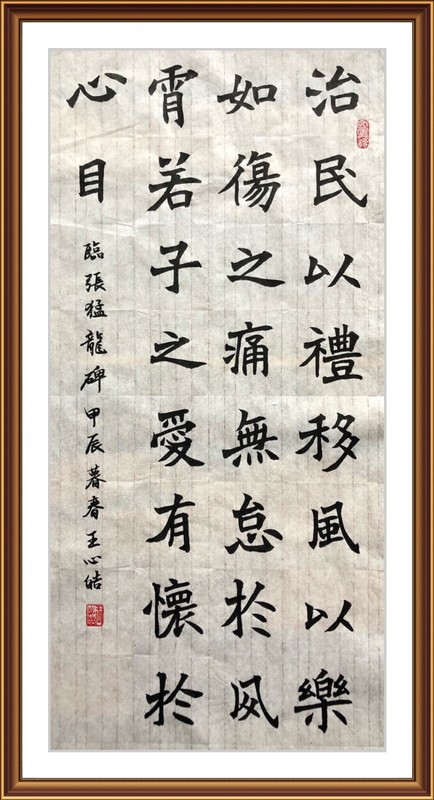 治民以禮移風以樂
如傷之痛無怠於夙
霄若子之愛有懷於
心目
臨張猛龍碑甲辰暮春王心皓